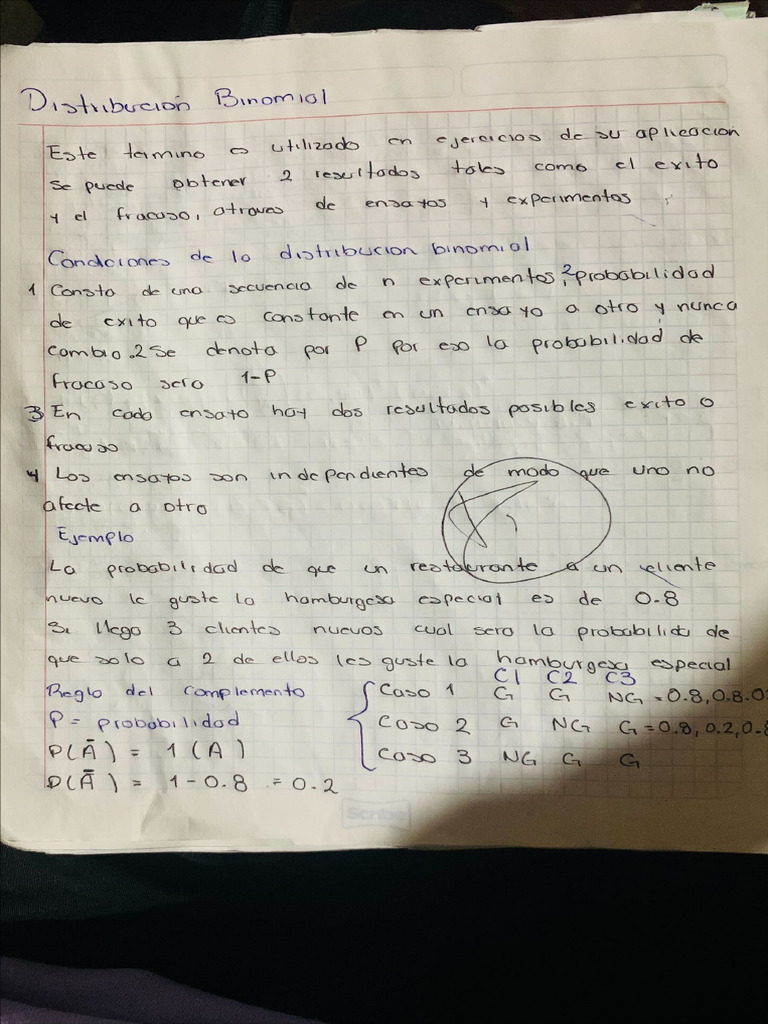 Distribución Binomial
Este termino es utilizado en ejercicios de su aplicacion
se puede obtener 2 resultados tales como el exito
y el fracaso, atraves de ensayos y experimentos
Condiciones de la distribucion binomial
1 Consta de una secuencia de n experimentos, 2 probabilidad
de exito que es constante en un ensayo a otro y nunca
cambia. 2 Se denota por P por eso la probabilidad de
fracaso sera 1-P
3 En cada ensayo hay dos resultados posibles exito o
fracaso
4 Los ensayos son independientes de modo que uno no
afecte a otro
Ejemplo
La probabilidad de que un restaurante a un cliente
nuevo le guste la hamburgesa especial es de 0.8
Si llega 3 clientes nuevos cual sera la probabilida de
que solo a 2 de ellos les guste la hamburgesa especial
C1 C2 C3
Regla del complemento Caso 1 G G NG = 0.8, 0.8, 0.
P = probabilidad Caso 2 G NG G = 0.8, 0.2, 0.8
P(Ā) = 1 (A) Caso 3 NG G G
P(Ā) = 1 - 0.8 = 0.2
Scribe